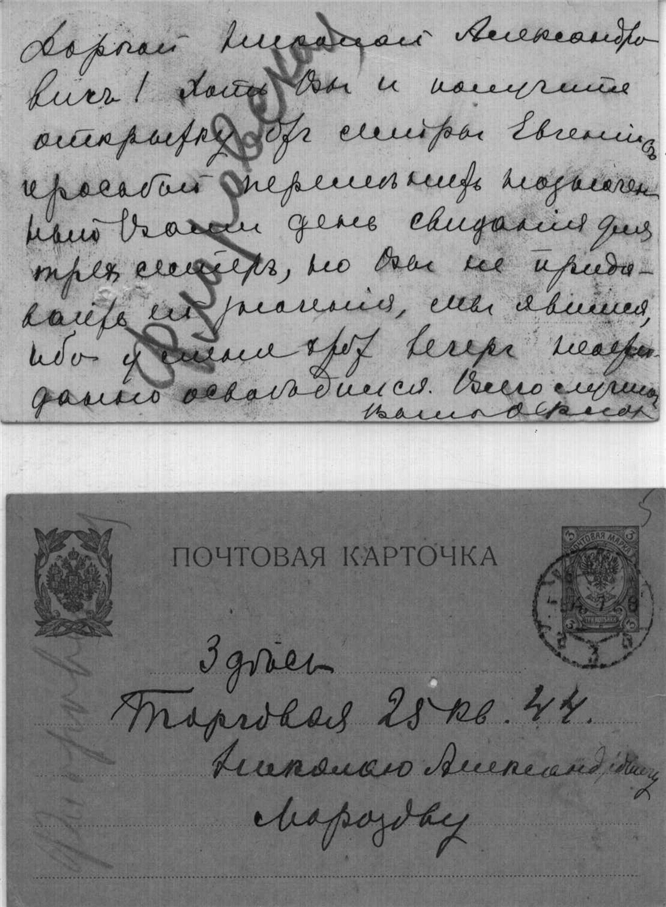 Дорогой Николай Александро
вичъ! Хоть Вы и получите
открытку отъ сестры Евгеніи съ
просьбой перемѣнить назначен
ный Вами день свиданія для
трех сестеръ, но Вы не прида
вайте ей значенія, мы явимся,
ибо у меня этот вечеръ неожи
данно освободился. Всего лучшаго
Ваша
ПОЧТОВАЯ КАРТОЧКА
ПОЧТОВАЯ МАРКА
3 3
Здѣсь
Торговая 25 кв. 44.
Николаю Александровичу
Морозову